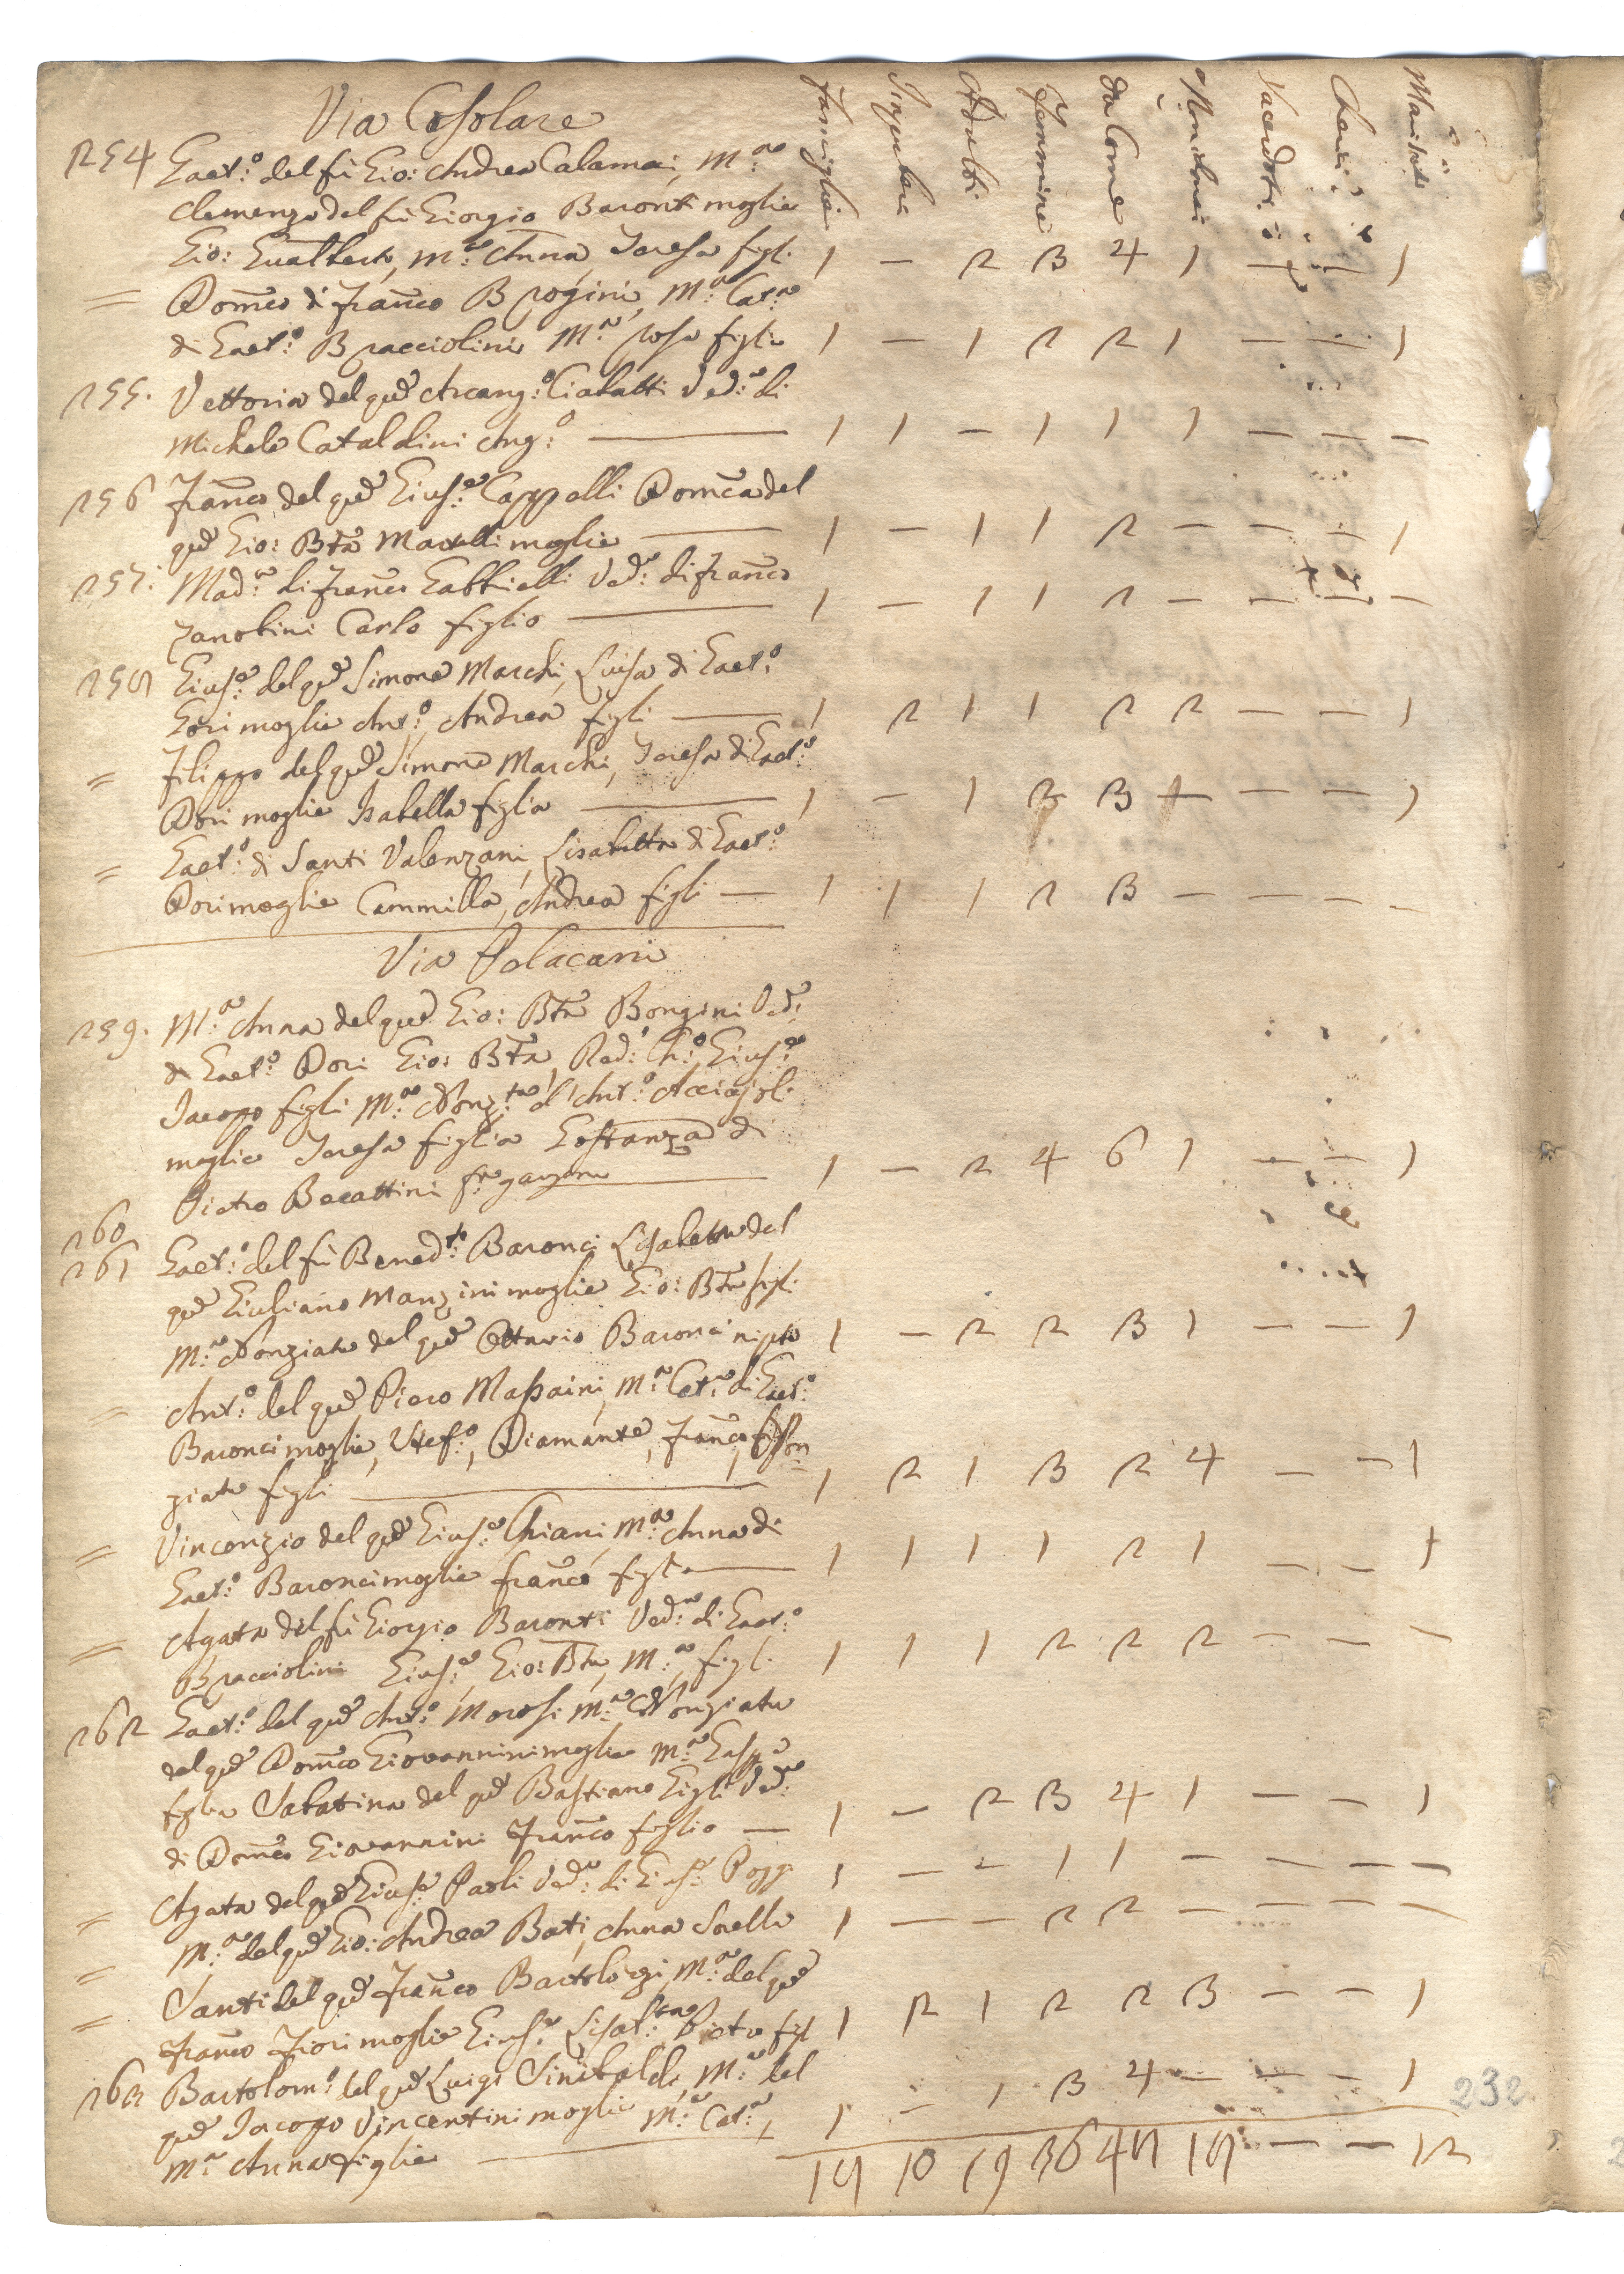 Via Cosolare
Famiglie Adulti Femmine da Com:e Sacerdoti Cherici Maritati
254 Gaet:o del fù Gio: Andrea Calamai, M:a
Clemenza del fù Giorgio Baronti moglie
Gio: Gualbert, M:a Anna, Teresa figli. 1 — 2 3 4 1 — — 1
= Dom̃co di Franc̃o Brogini, M:a Cat:a
di Gaet:o Bracciolini M:a Rosa figlia 1 — 1 2 2 1 — — 1
255. Vettoria del qu͠ Arcang:o Ciabatti Ved:a di
Michele Cataldini Ang:o — 1 1 — 1 1 1 — — —
256 Franc̃o del qu͠ Gius:e Cappelli Dom̃ca del
qu͠ Gio: Bt͠a Martelli moglie — 1 — 1 1 2 — — — 1
257. Mad:a di Franc̃o Gabbrielli Ved:a di Franc̃o
Zanobini Carlo figlio — 1 — 1 1 2 — — — —
258 Gius:e del qu͠ Simone Marchi, Luisa di Gaet:o
Gori moglie Ant:o, Andrea figli — 1 2 1 1 2 2 — — 1
= Filippo del qu͠ Simone Marchi, Teresa di Gaet:o
Dori moglie Isabella figlia — 1 — 1 3 3 — — — 1
= Gaet:o di Santi Valenzani, Lisabetta di Gaet:o
Dori moglie Cammilla, Andrea figli — 1 1 1 2 3 — — — —
Via Polacani
259. M:a Anna del qu͠ Gio: Bt͠a Bongini Ved:
di Gaet:o Dori Gio: Bt͠a, Red: Ch:o, Gius:e
Jacopo figli M:a Nonz:ta d'Ant:o Acciajoli
moglie Teresa figlia Costanza di
Pietro Becattini garzona — 1 — 2 4 6 1 — — 1
260
261 Gaet:o del fù Bened:to Baronci Lisabetta del
qu͠ Giuliano Manzini moglie Gio: Bt͠a figli
M:a Nonziata del qu͠ Ottavio Baronci nipote 1 — 2 2 3 1 — — 1
= Ant:o del qu͠ Piero Massaini, M:a Cat:a di Gaet:o
Baronci moglie, Stef:o, Diamante, Franc̃o, Non=
ziata figli — 1 2 1 3 2 4 — — 1
= Vincenzio del qu͠ Gius:e Chiani, M:a Anna di
Gaet:o Baronci moglie Franc̃o figlio — 1 1 1 1 2 1 — — 1
= Agata del fù Giorgio Baronti Ved:a di Gaet:o
Bracciolini Gius:e, Gio: Bt͠a, M:a figli 1 1 1 2 2 2 — — —
262 Gaet:o del qu͠ Ant:o Morosi M:a Nonziata
del qu͠ Dom̃co Giovannini moglie M:a Gasp:a
figlia Sabatina del qu͠ Bastiano Gigli Ved:a
di Dom̃co Giovannini Franc̃o figlio — 1 — 2 3 4 1 — — 1
= Agata del qu͠ Gius:e Paoli Ved:a di Gius:e Poggi 1 — — 1 1 — — — —
= M:a del qu͠ Gio: Andrea Bati, Anna Sorella 1 — — 2 2 — — — —
= Santi del qu͠ Franc̃o Bartolozzi, M:a del qu͠
Franc̃o Fiori moglie Gius:e Lisab:ta Pietro figl 1 2 1 2 2 3 — — 1
263 Bartolom:o del qu͠ Luigi Sinibaldi, M:a del
qu͠ Jacopo Vincentini moglie M:a Cat:a, 1 — 1 3 4 — — — 1
M:a Anna figlie —
18 10 19 36 48 18 — — 12
232